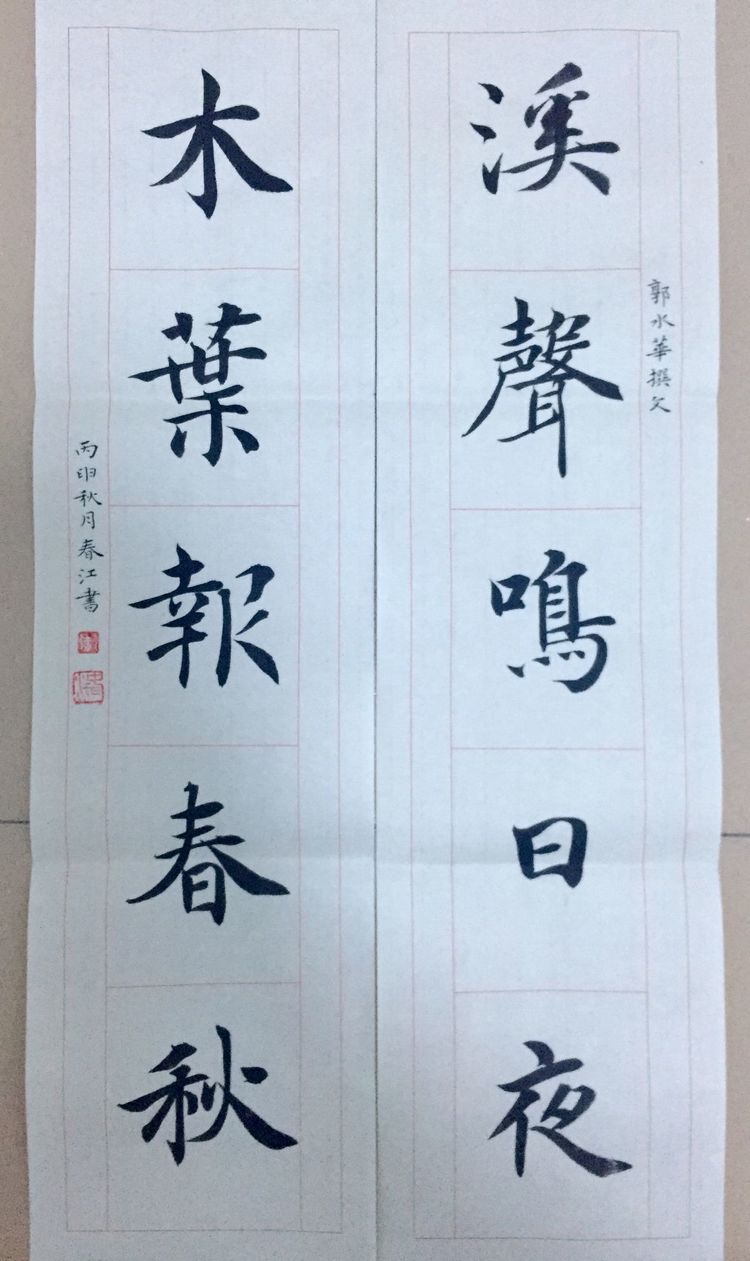 郭水華撰文
溪聲鳴日夜
木葉報春秋
丙申秋月春江書